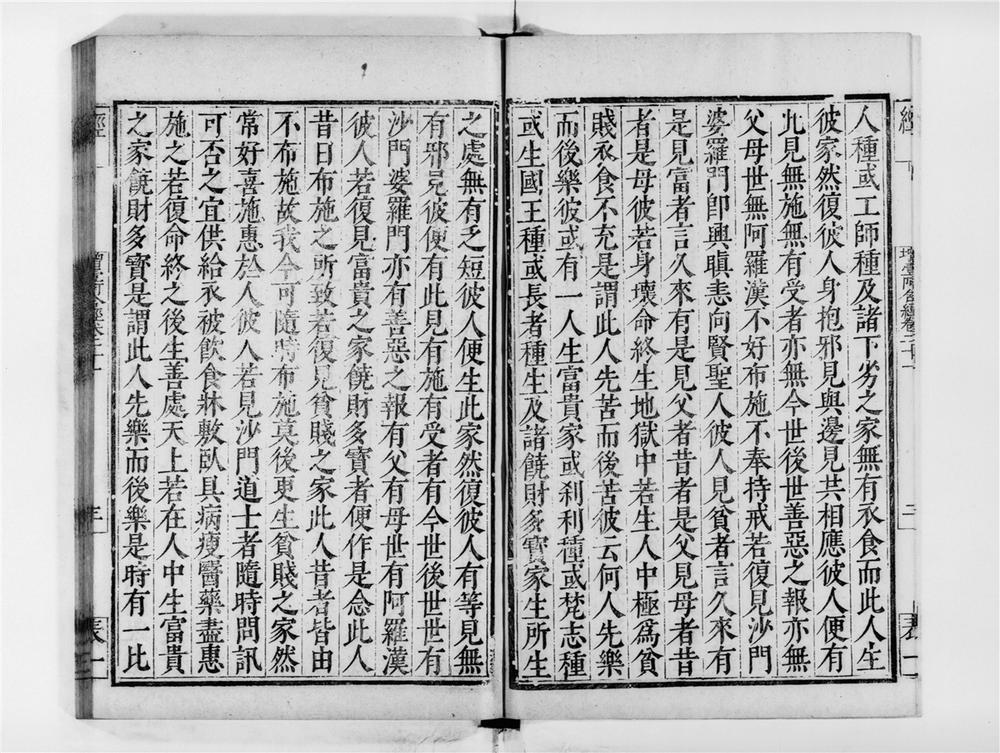 人種或工師種及諸下劣之家無有衣食而此人生
彼家然復彼人身抱邪見與邊見共相應彼人便有
此見無施無有受者亦無今世後世善惡之報亦無
父母世無阿羅漢不好布施不奉持戒若復見沙門
婆羅門卽興瞋恚向賢聖人彼人見貧者言久來有
是見富者言久來有是見父者昔者是父見母者昔
者是母彼若身壞命終生地獄中若生人中極爲貧
賤衣食不充是謂此人先苦而後苦彼云何人先樂
而後樂彼或有一人生富貴家或剎利種或梵志種
或生國王種或長者種生及諸饒財多寶家生所生
之處無有乏短彼人便生此家然復彼人有等見無
有邪見彼便有此見有施有受者有今世後世世有
沙門婆羅門亦有善惡之報有父有母世有阿羅漢
彼人若復見富貴之家饒財多寶者便作是念此人
昔日布施之所致若復見貧賤之家此人昔者皆由
不布施故我今可隨時布施莫後更生貧賤之家然
常好喜施惠於人彼人若見沙門道士者隨時問訊
可否之宜供給衣被飲食牀敷臥具病瘦醫藥盡惠
施之若復命終之後生善處天上若在人中生富貴
之家饒財多寶是謂此人先樂而後樂是時有一比
經
增壹阿含經卷二十一
三